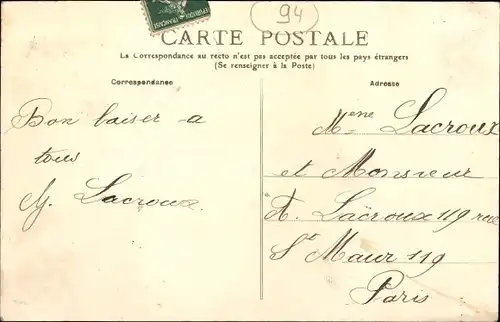 94
CARTE POSTALE
La Correspondance au recto n'est pas acceptée par tous les pays étrangers
(Se renseigner à la Poste)
Correspondance
Adresse
Bon baiser a
tous
Lacroux.
Mme Lacroux
et Monsieur
A. Lacroux 119 rue
St Maur 119
Paris